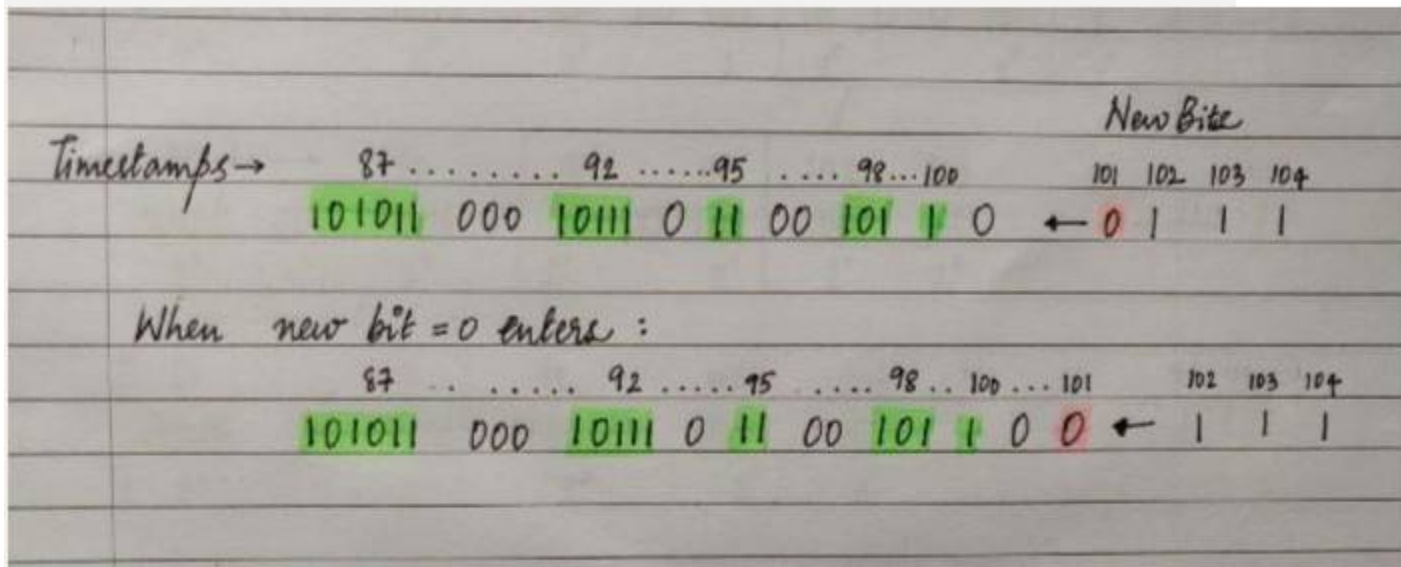 New Bits
Timestamps → 87 ......... 92 ......95 .... 98...100 101 102 103 104
101011 000 10111 0 11 00 101 1 0 ← 0 1 1 1
When new bit = 0 enters :
87 .. ...... 92 .....95 ..... 98.. 100 ... 101 102 103 104
101011 000 10111 0 11 00 101 1 0 0 ← 1 1 1